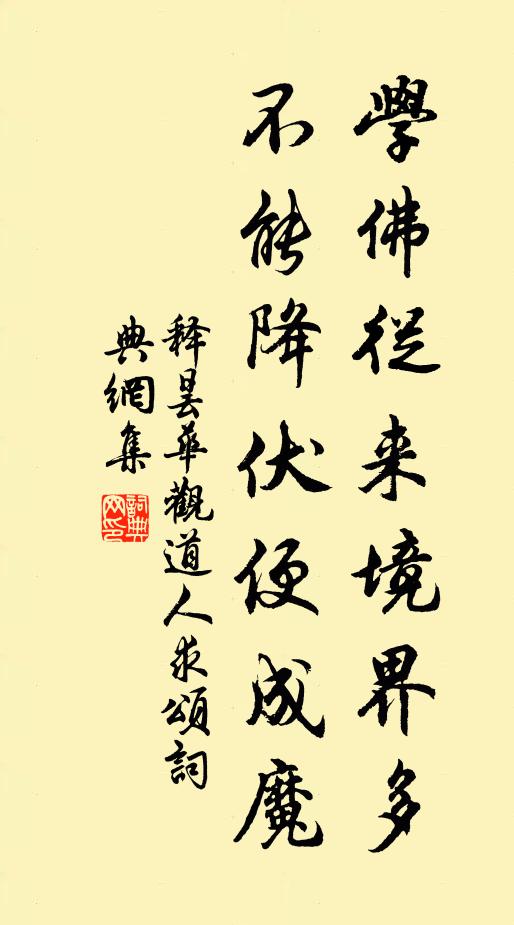 學佛從来境界多
不能降伏便成魔
释曇華觀道人求頌詞
典網集
詞典
网印